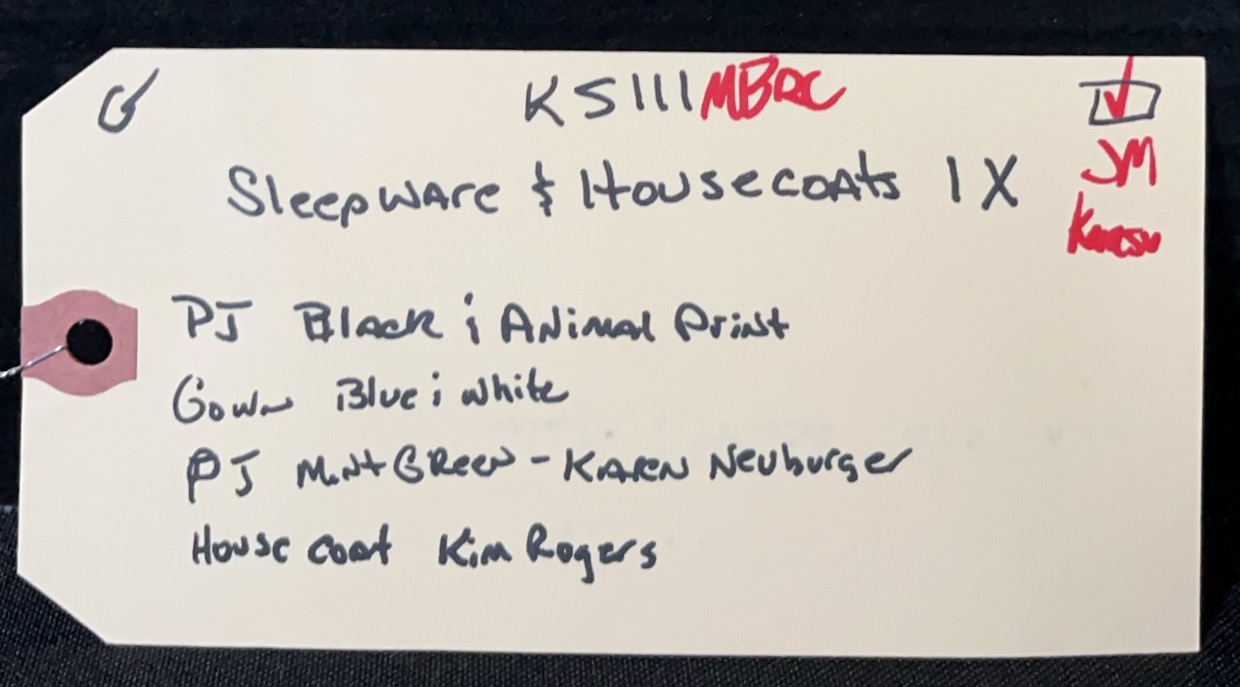 KS111 MBRC
Sleepware & Housecoats 1X
JM
PJ Black & Animal Print
Gown Blue & White
PJ Mint Green - Karen Neuburger
House coat Kim Rogers